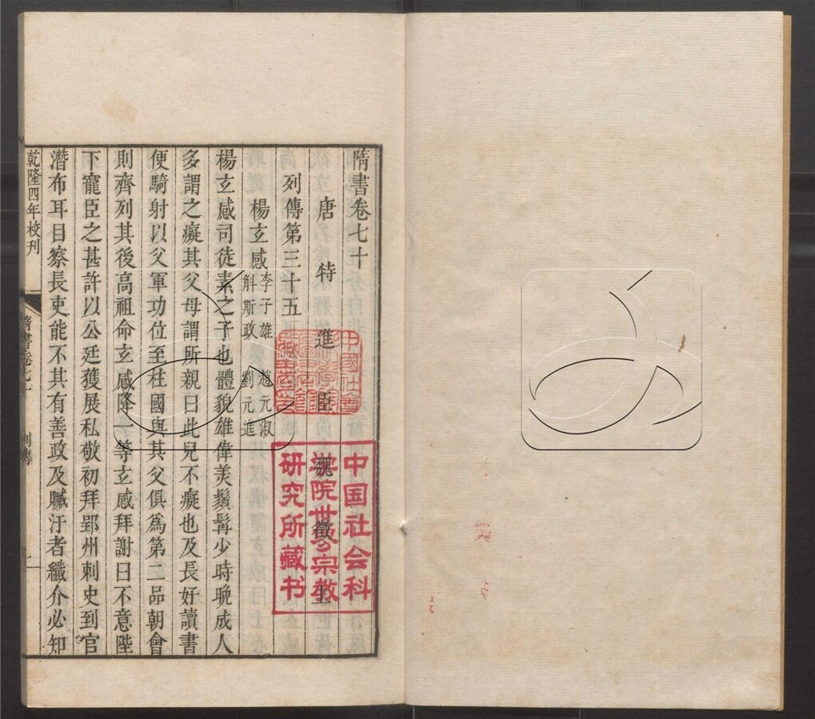 隋書卷七十
唐特進臣魏徵上
列傳第三十五
楊玄感 李子雄 趙元淑
斛斯政 劉元進
楊玄感司徒素之子也體貌雄偉美鬚髯少時晚成人
多謂之癡其父母謂所親曰此兒不癡也及長好讀書
便騎射以父軍功位至柱國與其父俱為第二品朝會
則齊列其後高祖命玄感降一等玄感拜謝曰不意陛
下寵臣之甚許以公廷獲展私敬初拜郢州刺史到官
潛布耳目察長吏能不其有善政及贓汙者纖介必知
乾隆四年校刊
隋書卷七十 列傳 一
中国社会科
学院世界宗教
研究所藏书